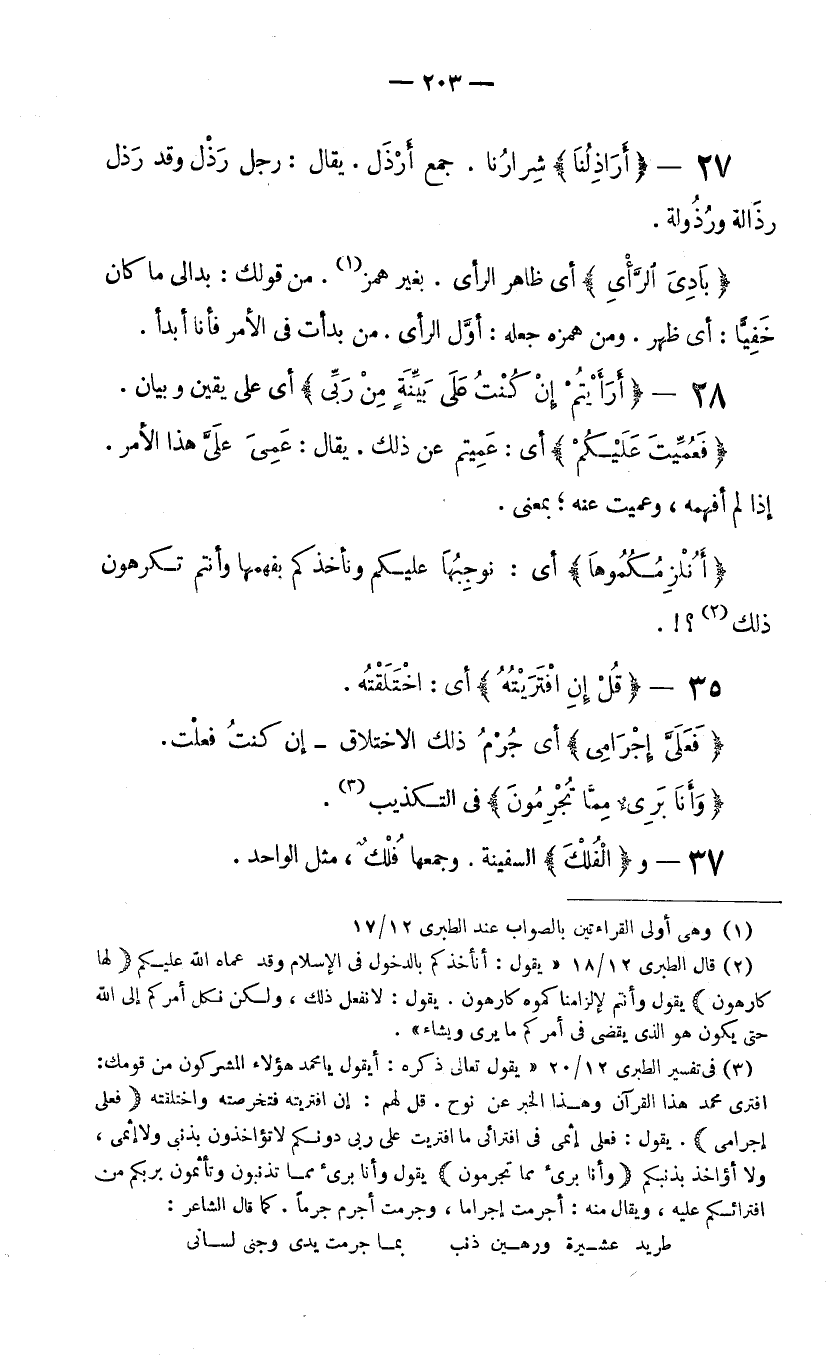 — ٢٠٣ —
٢٧ — ﴿ أَرَاذِلُنَا ﴾ شِرارُنا . جمع أَرْذَل . يقال : رجل رَذْل وقد رَذل
رذَالة ورُذُولة .
﴿ بَادِىَ ٱلرَّأْىِ ﴾ أى ظاهر الرأى . بغير همز (١) . من قولك : بدالى ما كان
خَفِيًّا : أى ظهر . ومن همزه جعله : أوَّل الرأى . من بدأت فى الأمر فأنا أبدأ .
٢٨ — ﴿ أَرَأَيْتُمْ إِنْ كُنْتُ عَلَى بَيِّنَةٍ مِنْ رَبِّى ﴾ أى على يقين و بيان .
﴿ فَعُمِّيَتْ عَلَيْكُمْ ﴾ أى : عَمِيتم عن ذلك . يقال : عَمِىَ علَىَّ هذا الأمر .
إذا لم أفهمه ، وعميت عنه ؛ بمعنى .
﴿ أَنُلْزِمُكُمُوهَا ﴾ أى : نوجِبُهَا عليكم ونأخذكم بفهمها وأنتم تكرهون
ذلك (٢) ؟! .
٣٥ — ﴿ قُلْ إِنِ افْتَرَيْتُهُ ﴾ أى : اخْتَلَقْتُه .
﴿ فَعَلَىَّ إِجْرَامِى ﴾ أى جُرْمُ ذلك الاختلاق – إن كنتُ فعلْت.
﴿ وَأَنَا بَرِىءٌ مِمَّا تُجْرِمُونَ ﴾ فى التكذيب (٣) .
٣٧ — و ﴿ الْفُلْكَ ﴾ السفينة . وجمعها فُلْكٌ ، مثل الواحد .
(١) وهى أولى القراءتين بالصواب عند الطبرى ١٧/١٢
(٢) قال الطبرى ١٨/١٢ « يقول : أنأخذكم بالدخول فى الإسلام وقد عماه الله عليكم ﴿ لها
كارهون ﴾ يقول وأنتم لإلزامناكموه كارهون . يقول : لانفعل ذلك ، ولكن نكل أمركم إلى الله
حتى يكون هو الذى يقضى فى أمركم ما يرى ويشاء » .
(٣) فى تفسير الطبرى ٢٠/١٢ « يقول تعالى ذكره : أيقول يامحمد هؤلاء المشركون من قومك:
افترى محمد هذا القرآن وهذا الخبر عن نوح . قل لهم : إن افتريته فتخرصته واختلقته ﴿ فعلى
إجرامى ﴾ . يقول : فعلى إثمى فى افترائى ما افتريت على ربى دونكم لاتؤاخذون بذنبى ولاإثمى ،
ولا أؤاخذ بذنبكم ﴿ وأنا برىء مما تجرمون ﴾ يقول وأنا برىء مما تذنبون وتأثمون بربكم من
افترائكم عليه ، ويقال منه : أجرمت إجراما ، وجرمت أجرم جرماً . كما قال الشاعر :
طريد عشيرة ورهين ذنب بما جرمت يدى وجنى لسانى